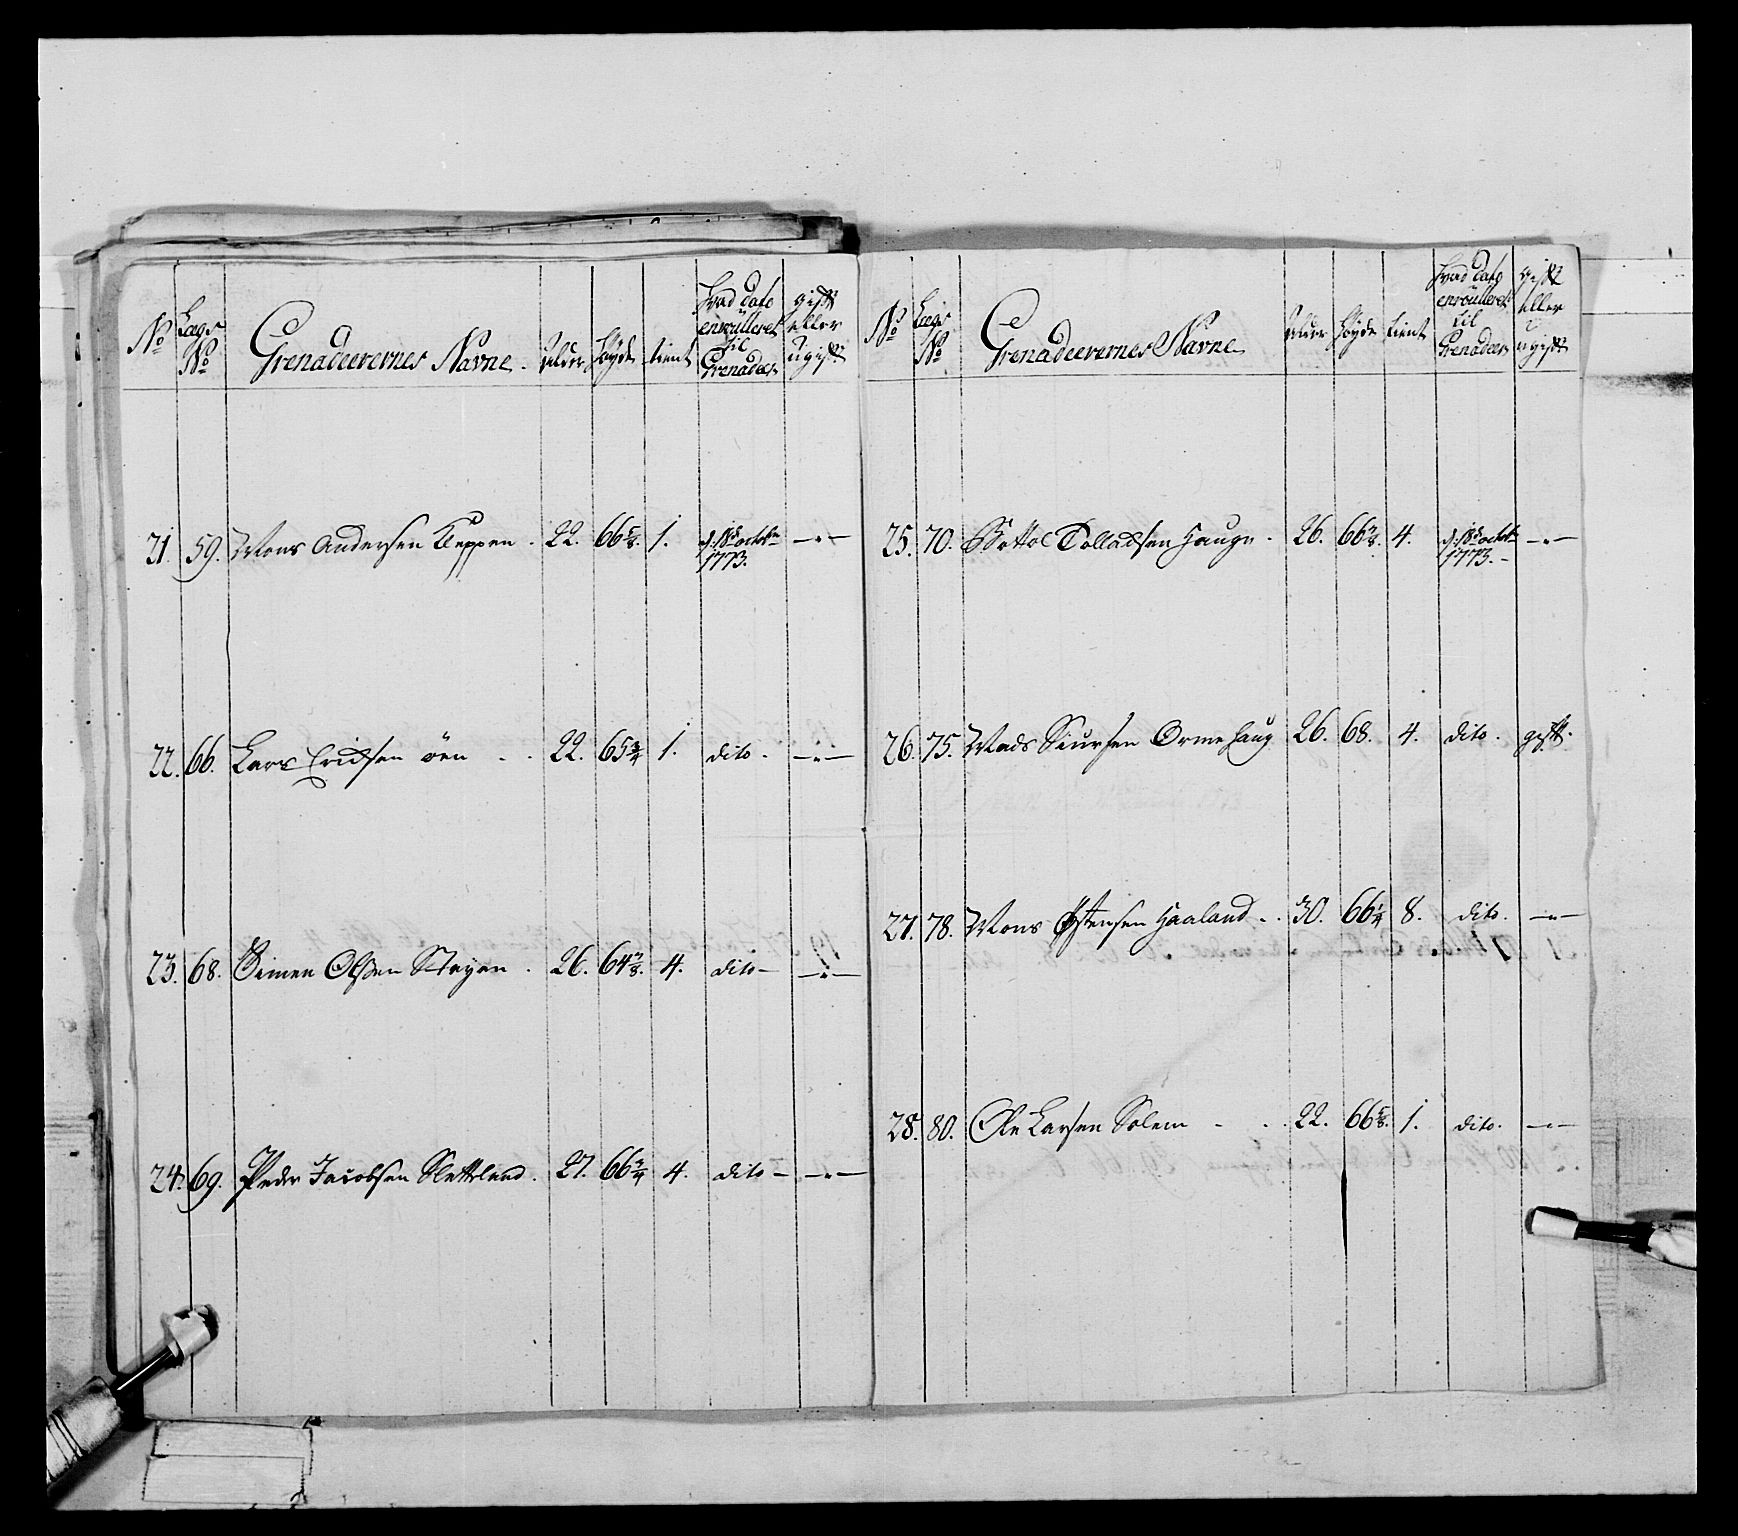 No Lægs No Grenadeerernes Navne. alder høyde tient hvad dato enroulleret til Grenadeer gift eller ugift
21. 59. Mons Andersen Kleppen. 22. 66 5/8. 1. d: 18de octobr 1773. -"-
22. 66. Lars Erichsen öen .. 22. 65 3/4 1. dito. -"-
23. 68. Simen Olsen 26. 64 7/8. 4. dito -"-
24. 69. Peder Jacobsen Sletteland. 27. 66 3/4 4. dito -"-
No Lægs No Grenadeerernes Navne alder høyde tient hvad dato enroulleret til Grenadeer gift eller ugift
25. 70. Bottol Tolladsen Hauge. 26. 66 7/8. 4. d: 18de octobr 1773. -"-
26. 75. Mads Siursen Ormehaug 26. 68. 4. dito. gift.
27. 78. Mons Østensen Haaland .. 30. 66 1/4 8. dito. -"-
28. 80. Ole Larsen Solem - .. 22. 66 5/8. 1. dito. -"-